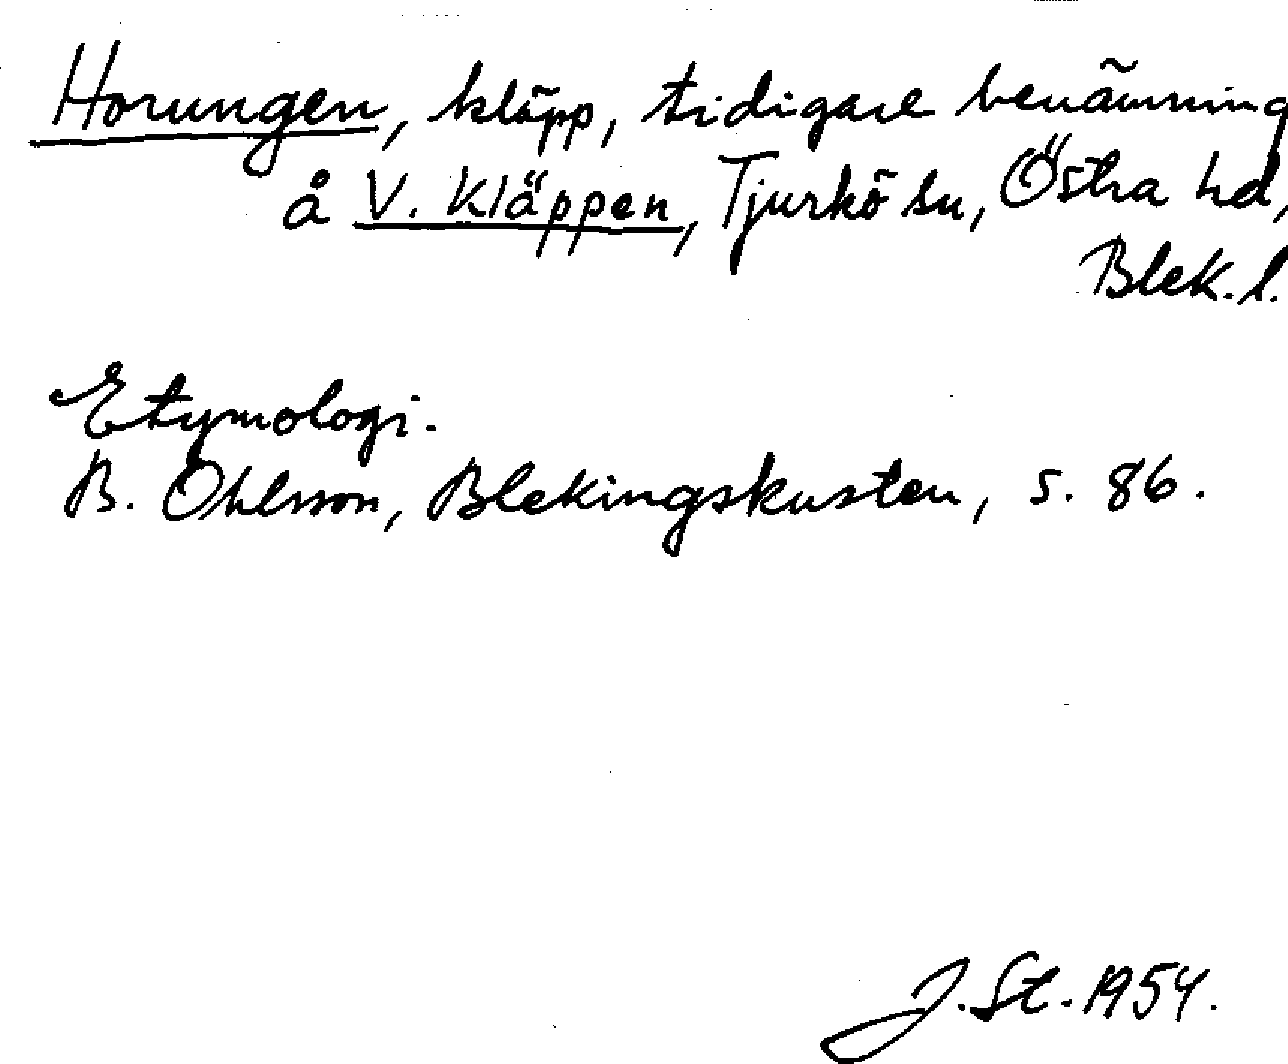 Horungen, kläpp, tidigare benämning
å V. Kläppen, Tjurkö sn, Östra hd,
Blek. l.
Etymologi.
B. Ohlsson, Blekingskusten, s. 86.
J. St. 1954.